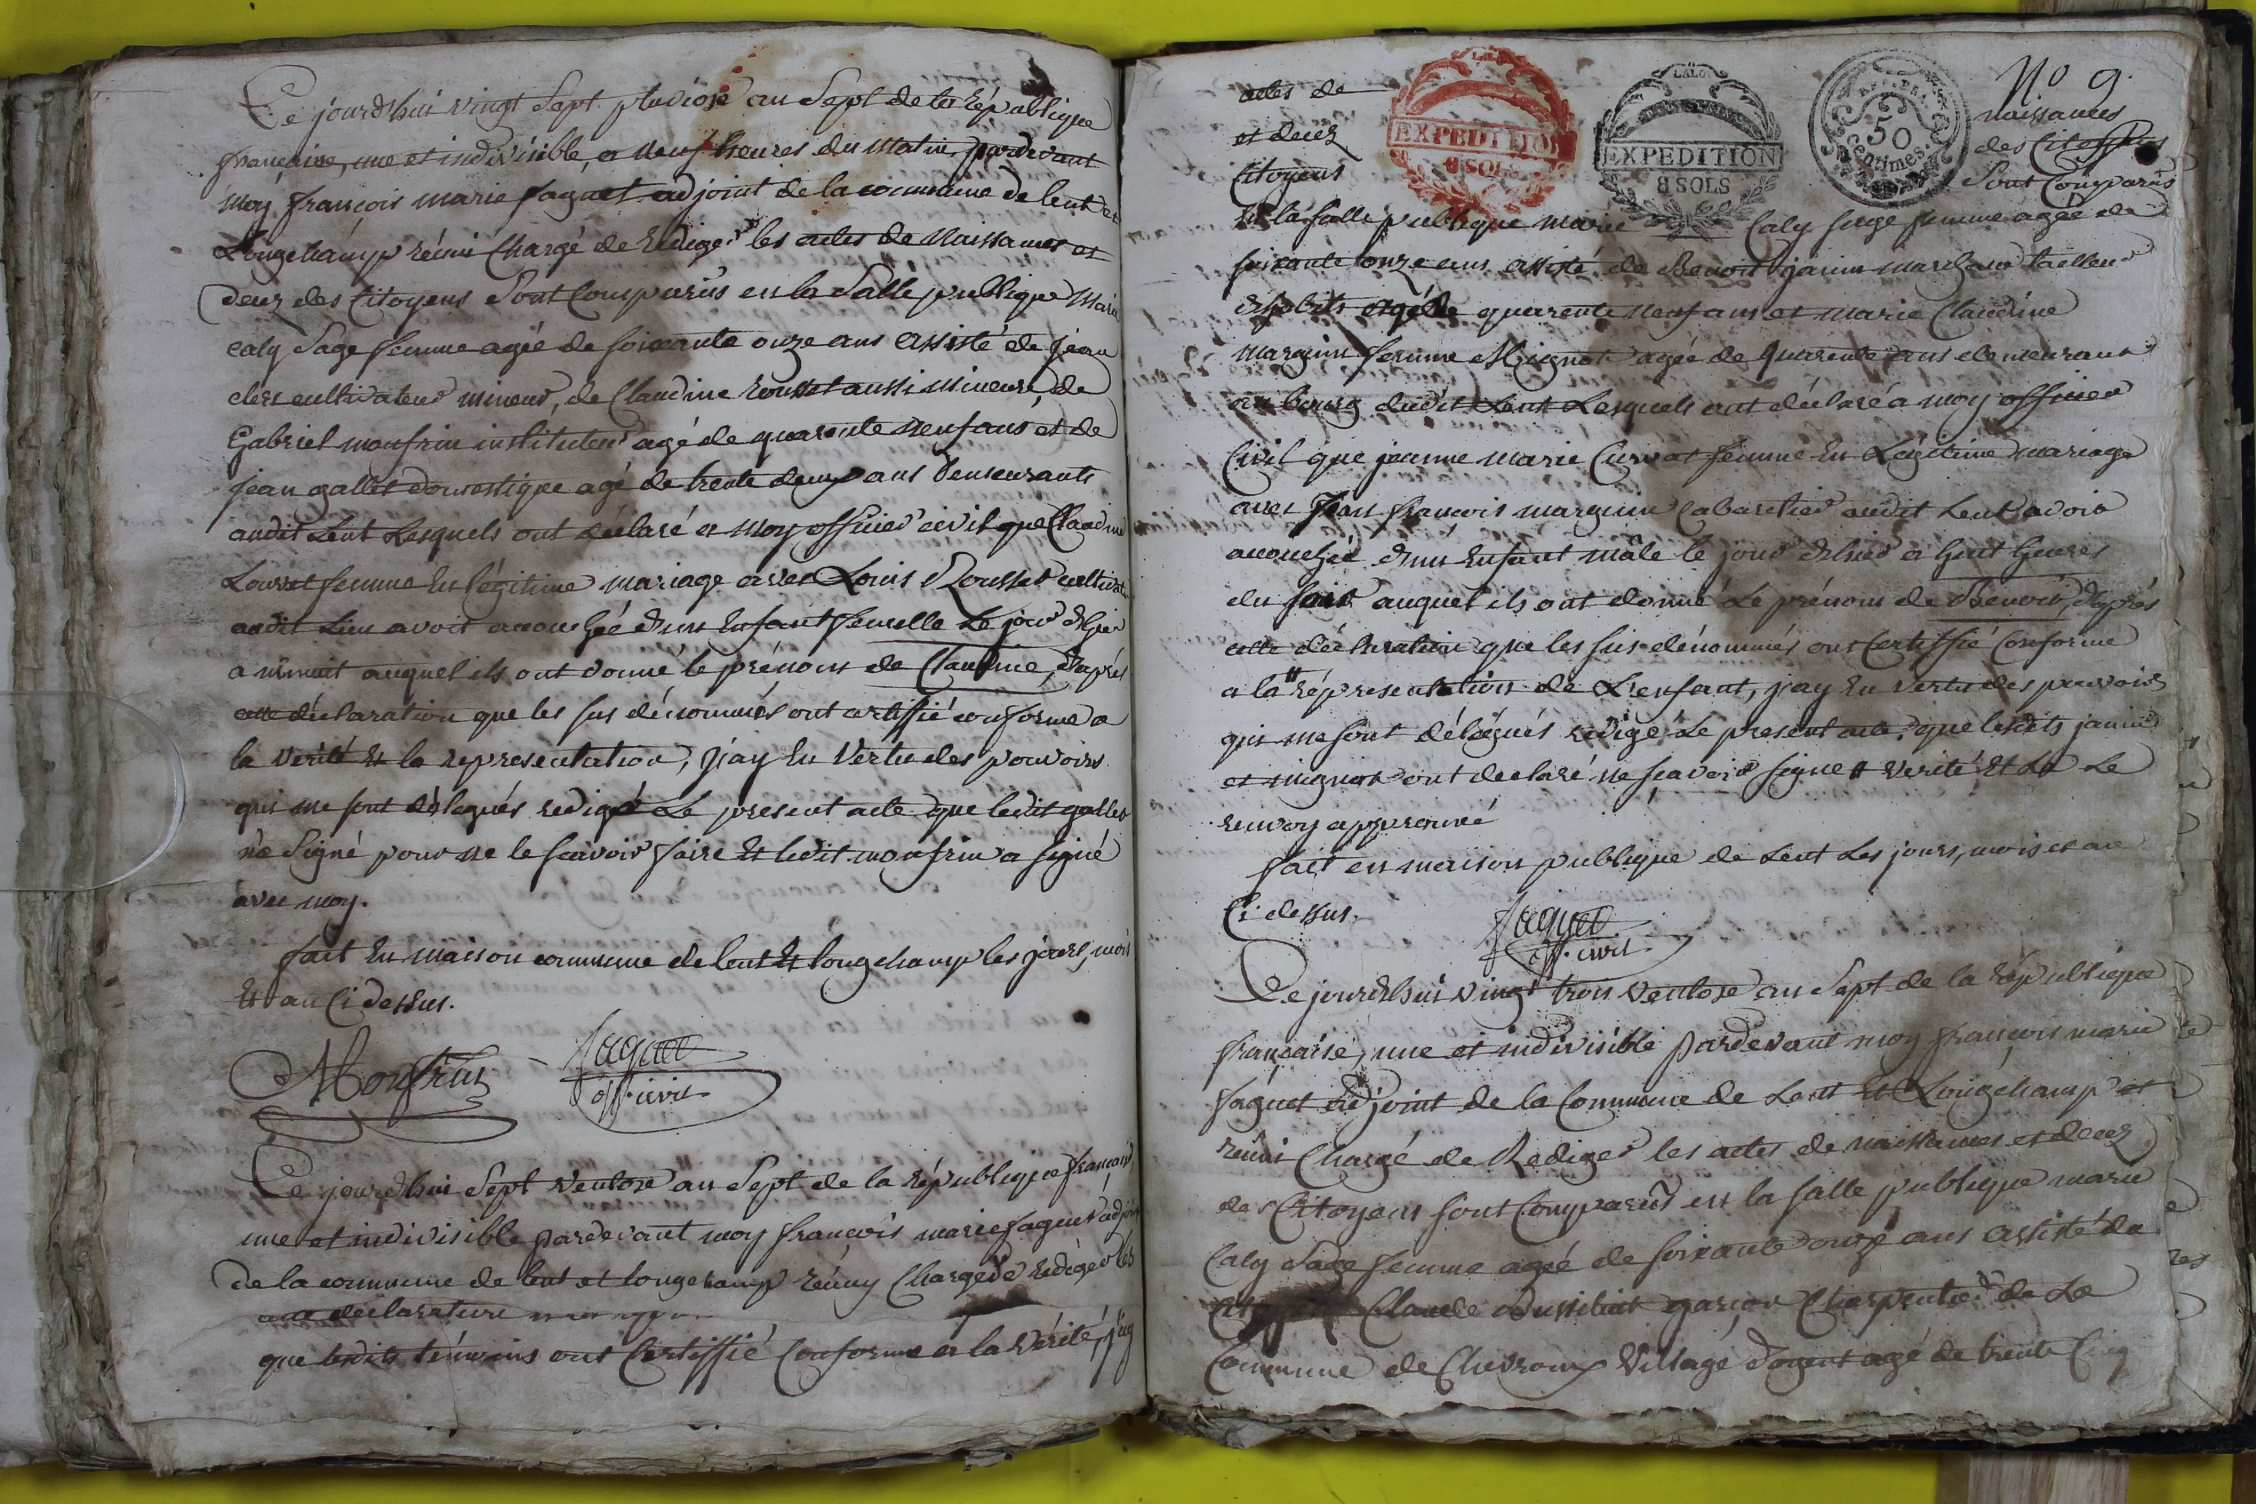 Ce jourd'hui vingt Sept pluviose an Sept de la République
française, une et indivisible, a neuf heures du matin, pardevant
moy françois marie faguet adjoint de la commune de lent et
Longchamp réuni Chargé de Rediger les actes de Naissances et
decez des Citoyens Sont Comparus en la Salle publique Marie
caly Sage femme agée de soixante onze ans assisté de jean
clerc cultivateur mineur, de Claudine rousset aussi mineure, de
Gabriel monfrin instituteur agé de quarante neuf ans et de
jean gallet domestique agé de trente deux ans demeurants
audit Lent Lesquels ont déclaré a moy officier civil que Claudine
Louvet femme En légitime mariage avec Louis Rousset cultivat
audit Lieu avoit accouchée d'un Enfant femelle Le jour d'hier
a minuit auquel ils ont donné le prénom de Claudine, d'après
cette déclaration que les sus dénommés ont certiffié conforme a
la verité Et la representation, j'ay En vertu des pouvoirs
qui me sont délégués redigé Le present acte que ledit gallet
n'a Signé pour ne le sçavoir faire Et ledit monfrin a signé
avec moy.
fait En maison commune de lent Et longchamp les jours, mois
Et an Ci dessus.
Monfrin faguet
off. civil
Ce jourd'hui Sept ventose an Sept de la république français
une et indivisible pardevant moy françois marie faguet adjoint
de la commune de lent et longchamp réuny Chargé de rédiger les
cette déclaration
que lesdits témoins ont Certiffié Conforme a la vérité, j'ay
No 9.
actes de naissances
et decez des Citoyens
Citoyens Sont Comparus
EXPEDITION
8 SOLS
LALO
EXPEDITION
8 SOLS
50
centimes.
En la salle publique marie Caly sage femme agée de
soixante onze ans assisté de Benoit janin marchand tailleur
d'habits agé de quarante neuf ans et marie Claudine
marguin femme Mignot agée de quarante ans demeurant
au bourg dudit Lent Lesquels ont déclaré a moy officier
Civil que jeanne marie Curvat femme En Légitime mariage
avec Jean françois marguin Cabaretier audit Lent avoir
accouchée d'un Enfant mâle le jour d'hier a huit heures
du soir auquel ils ont donné Le prénom de Benoit, d'après
cette déclaration que les sus dénommés ont Certiffié Conforme
a la # répresentation de L'enfant, j'ay En vertu des pouvoirs
qui me sont délégués redigé Le present acte que lesdits janin
et mignot ont declaré ne sçavoir signer # verité Et La Le
renvoy approuvé
fait en maison publique de Lent Les jours, mois et an
Ci dessus.
faguet
off. civil
Ce jourd'hui vingt trois ventose an Sept de la république
française, une et indivisible pardevant moy françois marie
faguet adjoint de la Commune de Lent Et Longchamp et
réuni Chargé de Rediger les actes de naissances et decez
des Citoyens sont Comparus en la salle publique marie
Caly Sage femme agée de soixante onze ans assisté de
Claude garçon Charpentier de La
Commune de Chevroux Village agé de trente Cinq